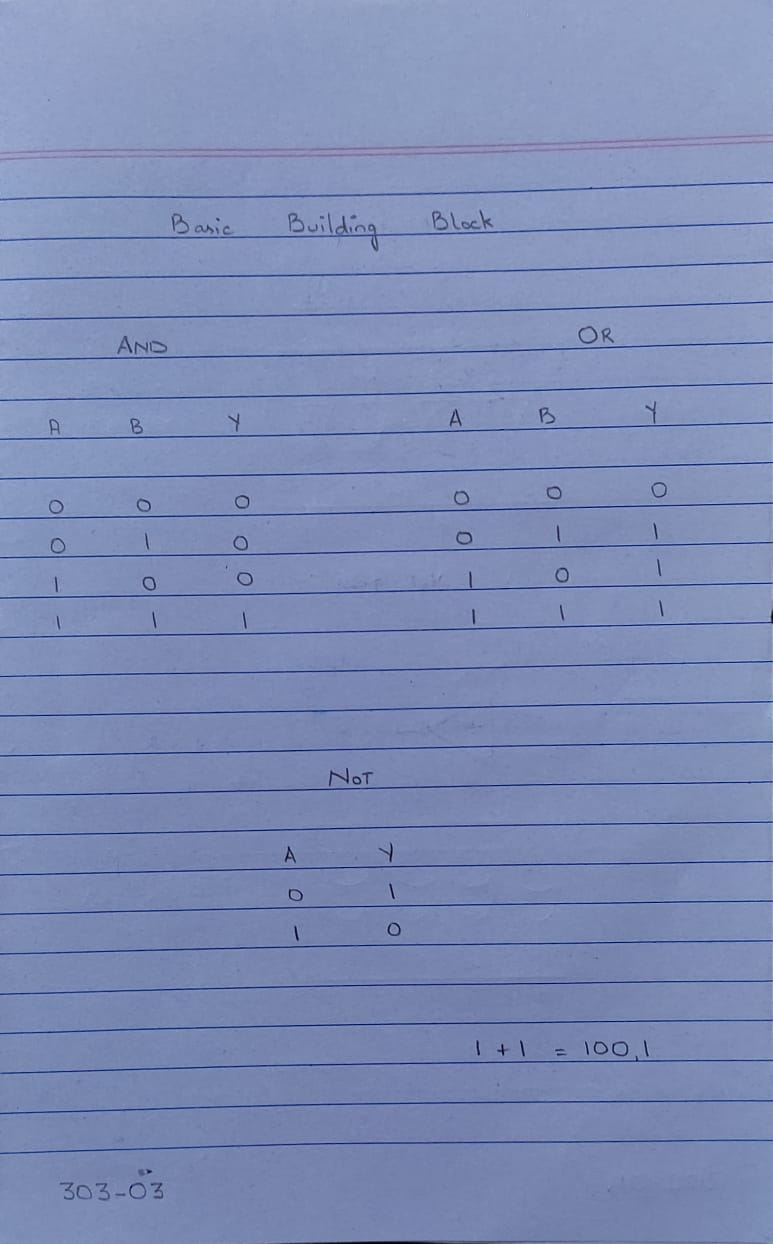 Basic Building Block
AND OR
A B Y A B Y
0 0 0 0 0 0
0 1 0 0 1 1
1 0 0 1 0 1
1 1 1 1 1 1
NOT
A Y
0 1
1 0
1 + 1 = 100,1
303-03